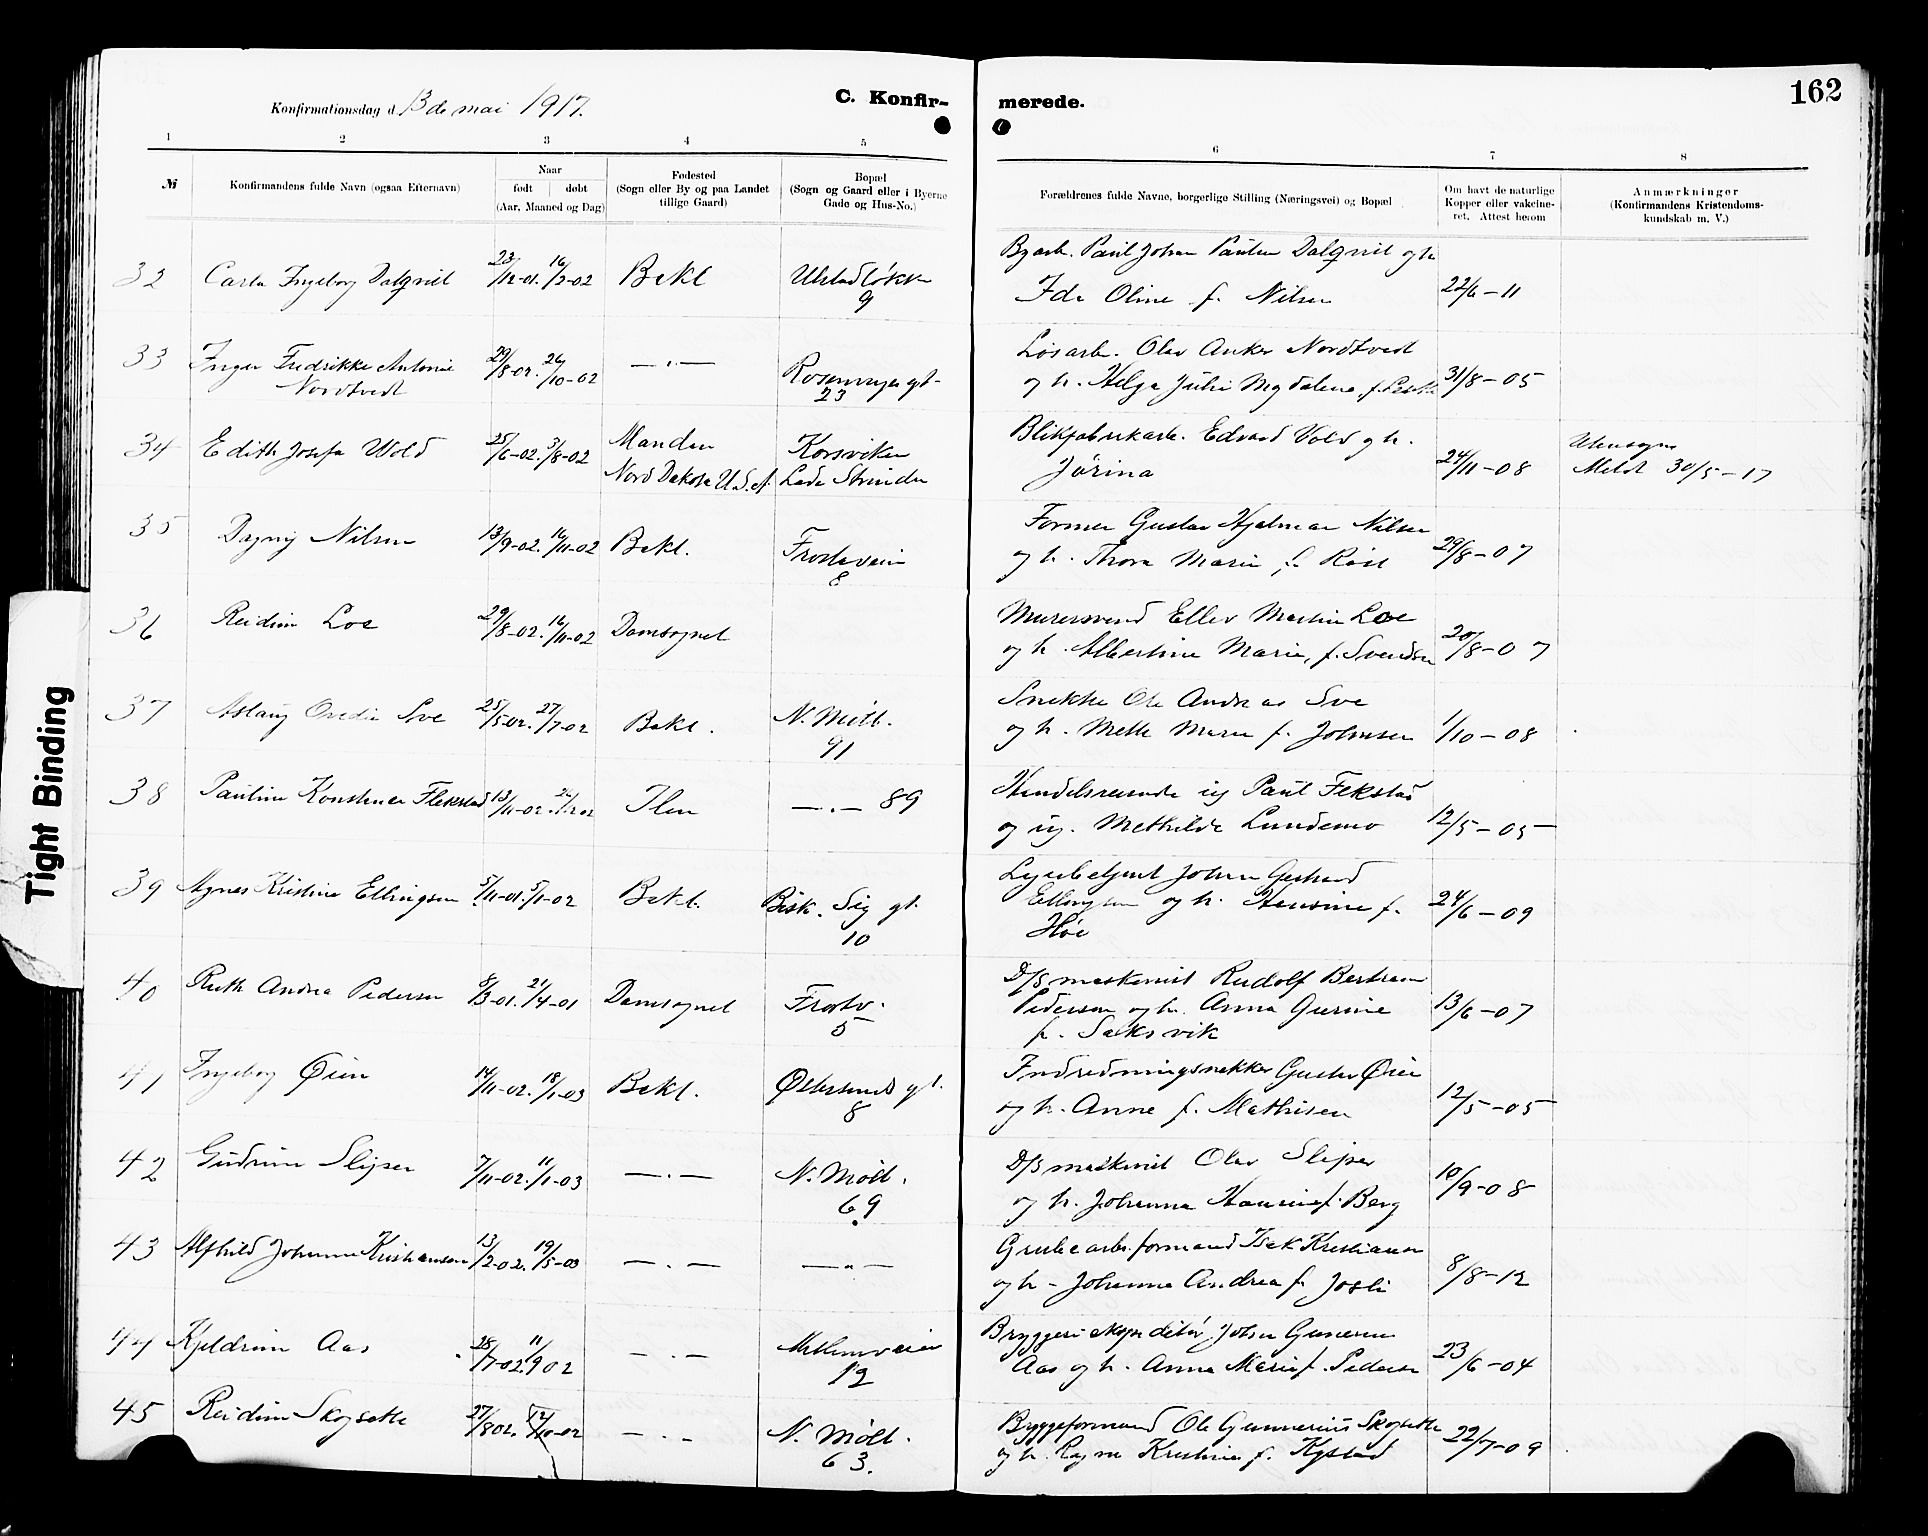 162
Konfirmationsdag d. 13de mai 1917.
C. Konfir-
merede.
1 2 3 4 5 6 7 8
№
Konfirmandens fulde Navn (ogsaa Efternavn)
Naar
født døbt
(Aar, Maaned og Dag)
Fødested
(Sogn eller By og paa Landet
tillige Gaard)
Bopæl
(Sogn og Gaard eller i Byerne
Gade og Hus-No.)
Forældrenes fulde Navne, borgerlige Stilling (Næringsvei) og Bopæl
Om havt de naturlige
Kopper eller vakcine-
ret. Attest herom
Anmærkninger
(Konfirmandens Kristendoms-
kundskab m. V.)
32 Carla Ingeborg Dalqvist 23/12-01. 16/2-02 Bakl
9
Byarb. Paul Johan Dalqvist og h.
Ida Oline f. Nilsen 22/6-11
33 Inger Fredrikke Antonie
Nordtvedt
29/8-02. 26/10-02 —"—
23
Løsarb. Olav Anker Nordtvedt
og h. Helga Julie Magdalena f. 31/8-05
34 Edith Josefa Wold 25/6-02. 3/8-02 Mandan
Nord Dakota U.S.A.
Korsviken
Lade Strinden
Blikfabrikarb. Edvard Vold og h.
Jørina 24/11-08
Utensogns
Meldt 30/5-17
35 Dagny Nilsen 13/9-02. 16/11-02 Bakl.
Frostaveien
8
Former Gustav Hjalmar Nilsen
og h. Thora Marie f. 29/8-07
36 Reidun Loe 29/8-02. 16/11-02 Domsognet
Murersvend Ellev Martin Loe
og h. Albertine Marie, f. Svendsen 20/8-07
37 Aslaug Sve 25/5-02. 27/7-02 Bakl.
N. Møll.
91
Snekker Ole Andreas Sve
og h. Mette Marie f. Johnsen 1/10-08
38 Pauline Konstanse 13/11-02. Ilen —"— 89
Handelsreisende ug Paul Fekstad
og ug. Mathilde Lundemo 12/5-05
39 Agnes Kristine Ellingsen 5/11-01. 5/1-02 Bakl.
Bisk. Sig. gt.
10
Johan
Ellingsen og h. Hansine f.
Høe
24/6-09
40 Ruth Andrea Pedersen 8/3-01. 21/4-01 Domsognet
Frostv.
5
D/S maskinist Rudolf Bertram
Pedersen og h. Anna Gurine
f. Saksvik
13/6-07
41 Ingeborg Øien 14/11-02. 18/1-03 Bakl.
Østersunds gt.
8
Indredningsnekker Gustav Øien
og h. Anne f. Mathisen 12/5-05
42 Gudrun Sliper 7/11-02. 11/1-03 —"—
N. Møll.
69
D/S maskinist Olav Sliper
og h. Johanna f. Berg 10/9-08
43 Alfhild Johanne Kristiansen 13/2-02. 19/5-03 —"— —"—
Grubearb.formand Isak Kristiansen
og h. Johanna Andrea f. Josli 8/8-12
44 Kjeldrun Aas 28/7-02. 11/9 02 —"—
12
Bryggeri Johan
Aas og h. Anna Marie f. Pedersen 23/6-04
45 Reidun Skogseth 27/8 02. 12/10-02 —"—
N. Møll.
63.
Bryggeformand Ole Gunnerius
og h. Kristine f. Kystad 22/7-09
Tight Binding